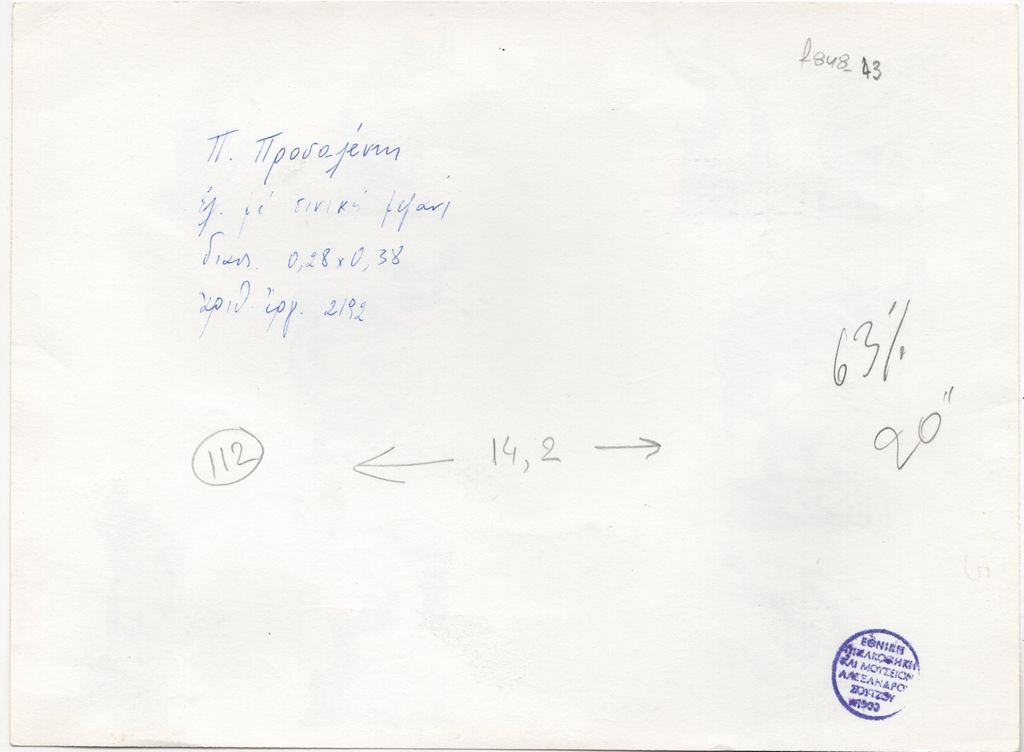 R848-13
Π. Προσαλέντη
ἔγ. μέ σινική μελάνι
διασ. 0,28 x 0,38
ἀριθ. ἔργ. 2192
63%
20"
112
← 14,2 →
ΕΘΝΙΚΗ
ΠΙΝΑΚΟΘΗΚΗ
ΚΑΙ ΜΟΥΣΕΙΟΝ
ΑΛΕΞΑΝΔΡΟΥ
ΣΟΥΤΖΟΥ
1900